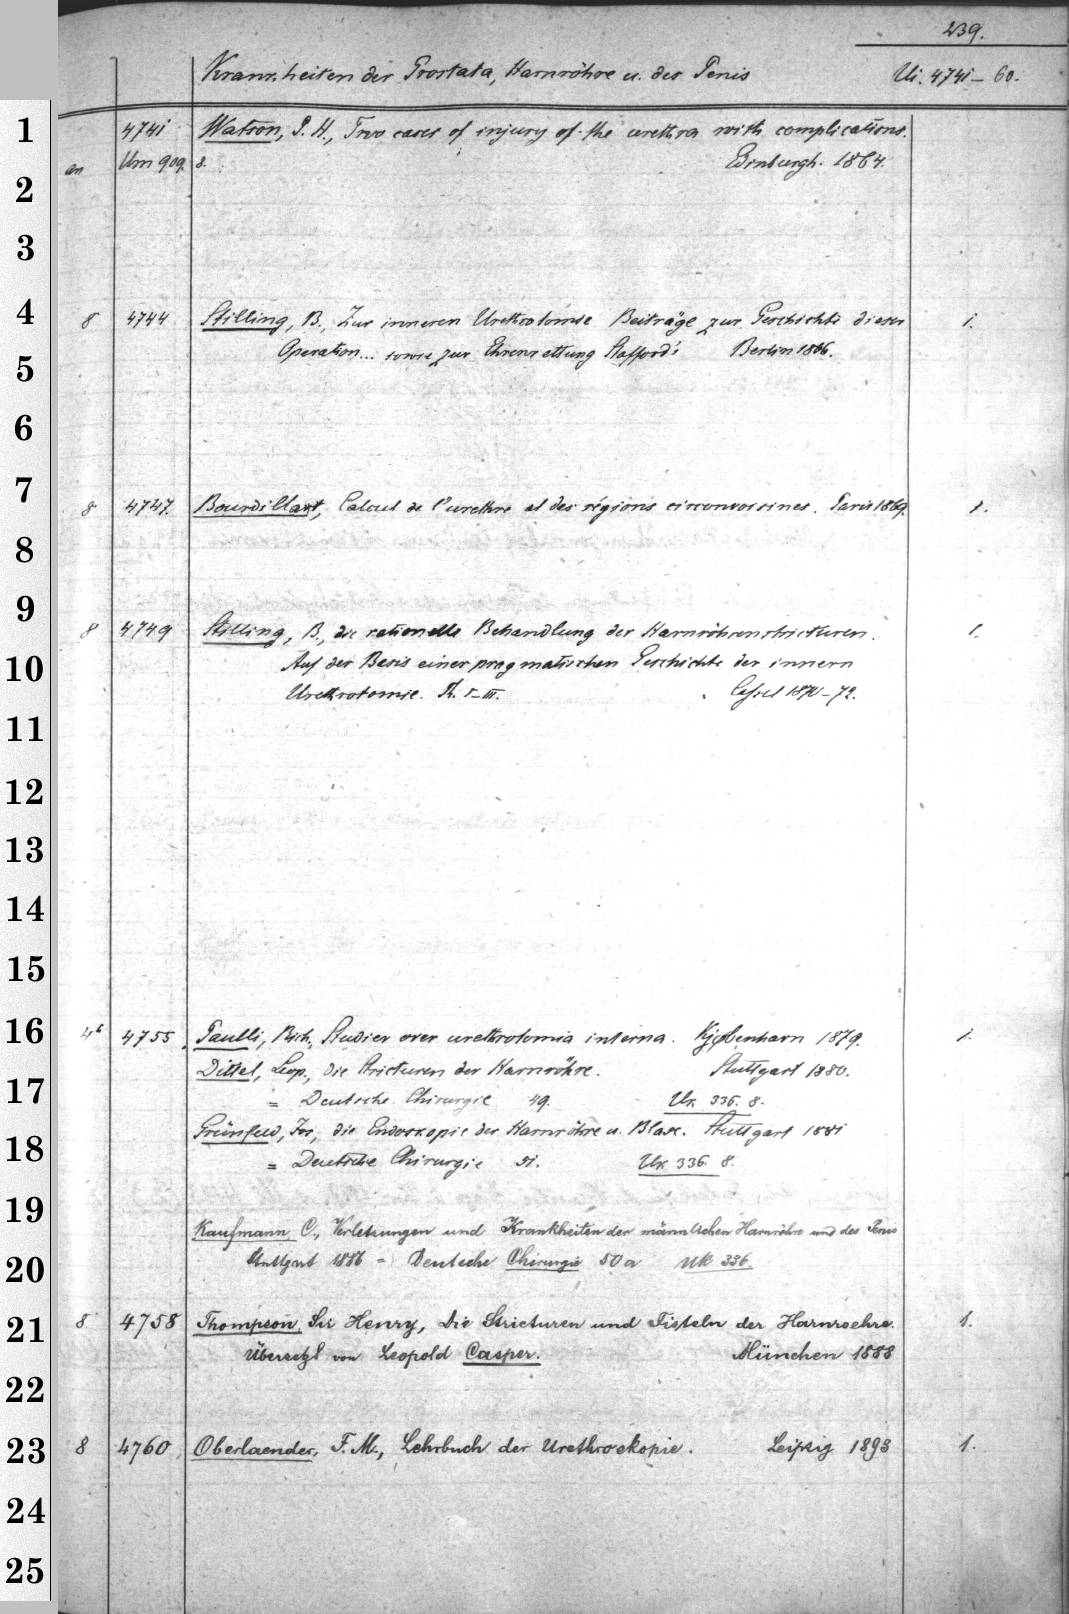 239.
Krankheiten der Prostata, Harnröhre u. des Penis Ui. 4741–60.
1 4741 Watson, P. H., Two cases of injury of the urethra with complications.
an Um 909 8. Edinburgh. 1864.
2
3
4 8 4744 Stilling, B., Zur inneren Urethrotomie. Beiträge zur Geschichte dieser 1.
Operation... sowie zur Ehrenrettung Stafford's Berlin 1866.
5
6
7
8 4747 Bourdillat, Calcul de l'urethre et des régions circonvoisines. Paris 1869. 1.
8
9
8 4749 Stilling, B., die rationelle Behandlung der Harnröhrenstricturen. 1.
10 Auf der Basis einer pragmatischen Geschichte der innern
Urethrotomie. Th. I–III. Cassel 1870–72.
11
12
13
14
15
16 4° 4755 Paulli, Rich., Studier over urethrotomia interna. Kjøbenhavn 1879. 1.
Dittel, Leop., die Stricturen der Harnröhre. Stuttgart 1880.
17 = Deutsche Chirurgie 49. Uk 336. 8.
Grünfeld, Jos, die Endoskopie der Harnröhre u. Blase. Stuttgart 1881
18 = Deutsche Chirurgie 51. Uk 336. 8.
19
Kaufmann C., Verletzungen und Krankheiten der männlichen Harnröhre und des Penis
20 Stuttgart 1886 = Deutsche Chirurgie 50a Uk 336.
21 8 4758 Thompson, Sir Henry, Die Stricturen und Fisteln der Harnroehre. 1.
Übersetzt von Leopold Casper. München 1888
22
23 8 4760 Oberlaender, F. M., Lehrbuch der Urethroskopie. Leipzig 1893 1.
24
25